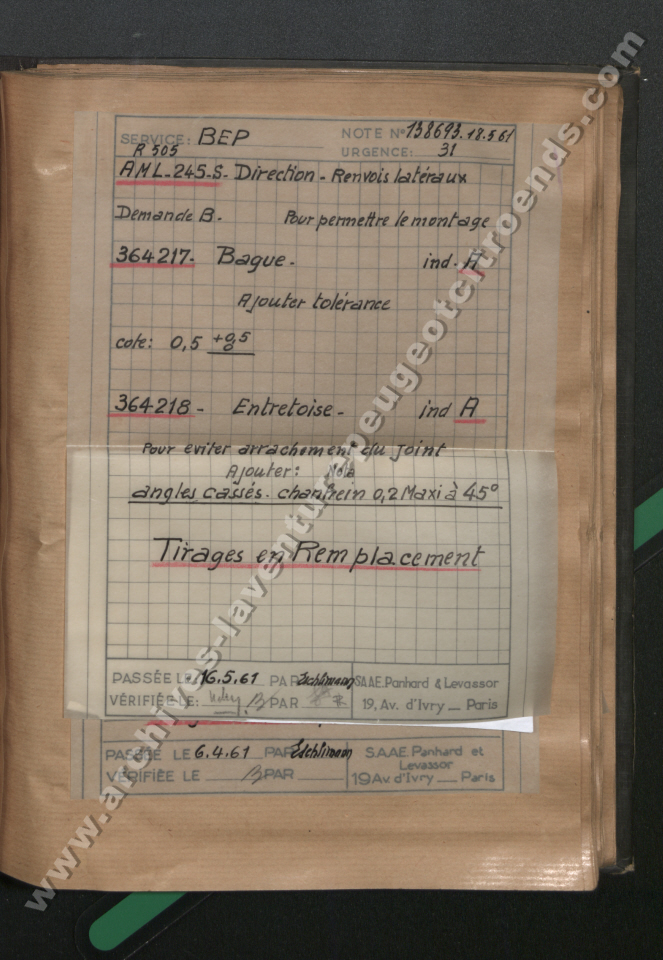 SERVICE: BEP NOTE N° 138693. 18.5.61
R 505 URGENCE: 31
AML-245-S- Direction - Renvois latéraux
Demande B. Pour permettre le montage
364217- Bague- ind. A
Ajouter tolérance
cote: 0,5 +0,5
0
364218- Entretoise- ind A
Pour eviter arrachement du Joint
Ajouter: Nota
angles cassés. chanfrein 0,2 Maxi à 45°
Tirages en Remplacement
PASSÉE LE 16.5.61 PAR Eschlimann S.A.A.E. Panhard & Levassor
VÉRIFIÉE LE: PAR 19, Av. d'Ivry — Paris
PASSÉE LE 6.4.61 PAR Eschlimann S.A.A.E. Panhard et
Levassor
VÉRIFIÉE LE PAR 19 Av. d'Ivry — Paris
www.archives-laventurepeugeotcitroends.com